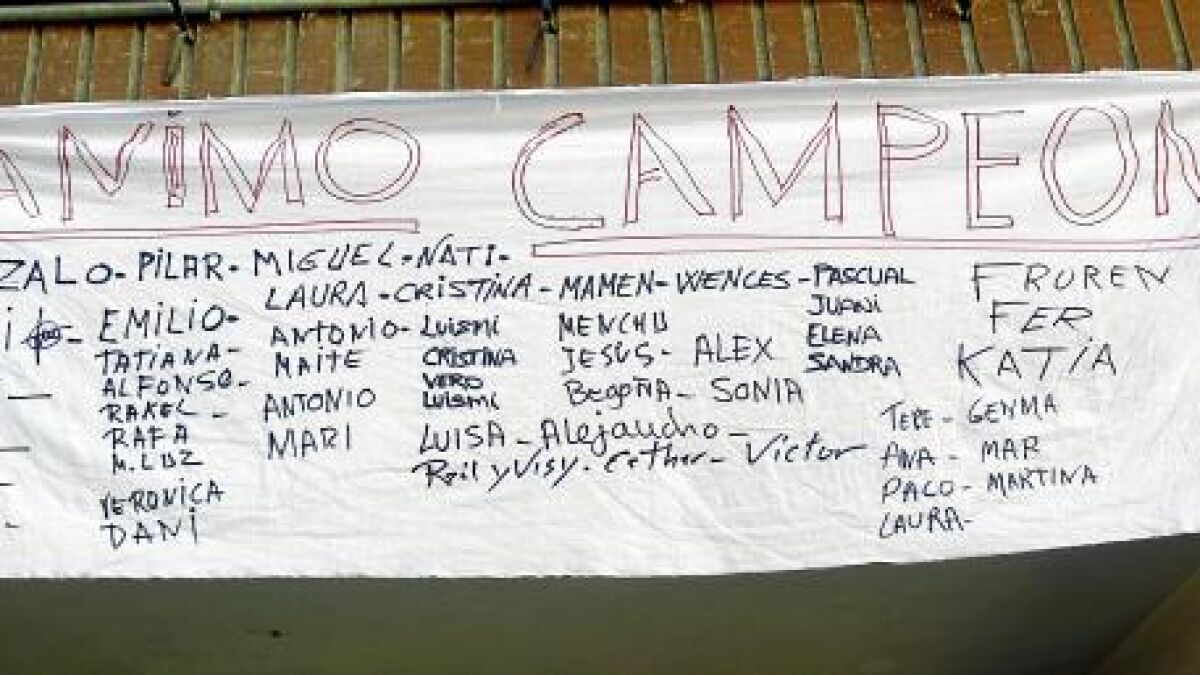 ANIMO CAMPEON
ZALO - PILAR - MIGUEL - NATI -
LAURA - CRISTINA - MAMEN - WENCES - PASCUAL
EMILIO -
TATIANA -
ALFONSO -
RAKEL -
RAFA
M. LUZ
VERONICA
DANI
ANTONIO -
MAITE
ANTONIO
MARI
LUISMI
CRISTINA
VERO
LUISMI
MENCHU
JESUS - ALEX
BEGOÑA - SONIA
LUISA - Alejandro -
y Visy - Esther - Victor
JUANI
ELENA
SANDRA
FROREN
FER
KATIA
TERE - GENMA
ANA - MAR
PACO - MARTINA
LAURA -